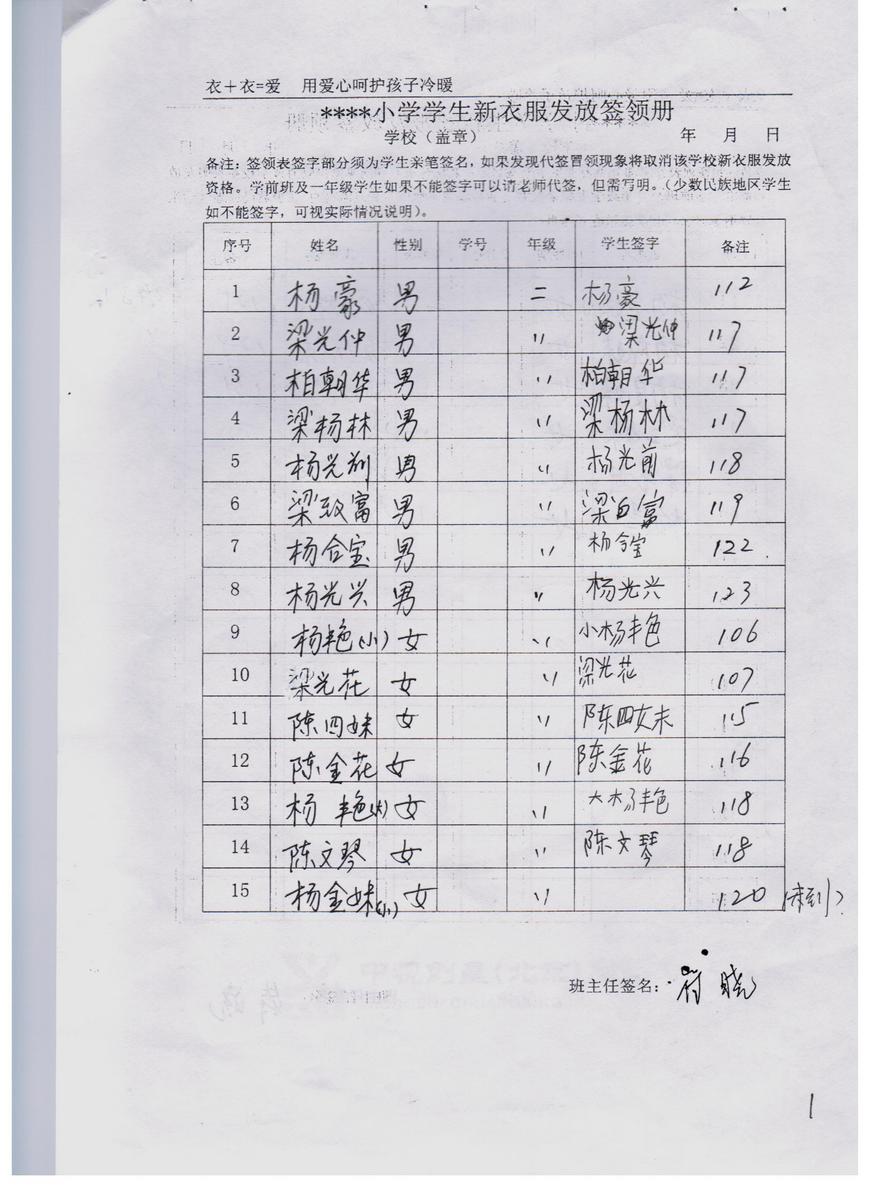 衣＋衣=爱 用爱心呵护孩子冷暖
****小学学生新衣服发放签领册
学校（盖章） 年 月 日
备注：签领表签字部分须为学生亲笔签名，如果发现代签冒领现象将取消该学校新衣服发放
资格。学前班及一年级学生如果不能签字可以请老师代签，但需写明。（少数民族地区学生
如不能签字，可视实际情况说明）。
序号 姓名 性别 学号 年级 学生签字 备注
1 杨豪 男 二 杨豪 112
2 梁光仲 男 〃 梁光仲 117
3 柏朝华 男 〃 柏朝华 117
4 梁杨林 男 〃 梁杨林 117
5 杨光前 男 〃 杨光前 118
6 梁致富 男 〃 梁白富 119
7 杨合宝 男 〃 杨合宝 122
8 杨光兴 男 〃 杨光兴 123
9 杨艳(小) 女 〃 小杨艳 106
10 梁光花 女 〃 梁光花 107
11 陈四妹 女 〃 陈四妹 115
12 陈金花 女 〃 陈金花 116
13 杨艳(大) 女 〃 大杨艳 118
14 陈文琴 女 〃 陈文琴 118
15 杨金妹(小) 女 〃 120 (未到)
班主任签名： 符晓
1